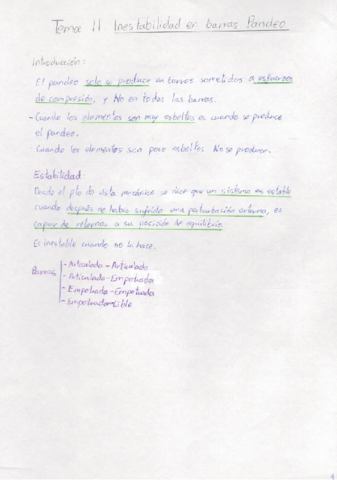 Tema 11 Inestabilidad en barras Pandeo
Introducción:
El pandeo solo se produce en barras sometidas a esfuerzos
de compresión, y No en todas las barras.
- Cuando los elementos son muy esbeltos es cuando se produce
el pandeo.
Cuando los elementos son poco esbeltos No se produce.
Estabilidad:
Desde el pto de vista mecánico se dice que un sistema es estable
cuando después de haber sufrido una perturbación externa, es
capaz de retornar a su posición de equilibrio.
Es inestable cuando no lo hace.
Barras - Articulada - Articulada
- Articulada - Empotrada
- Empotrada - Empotrada
- Empotrada - Libre